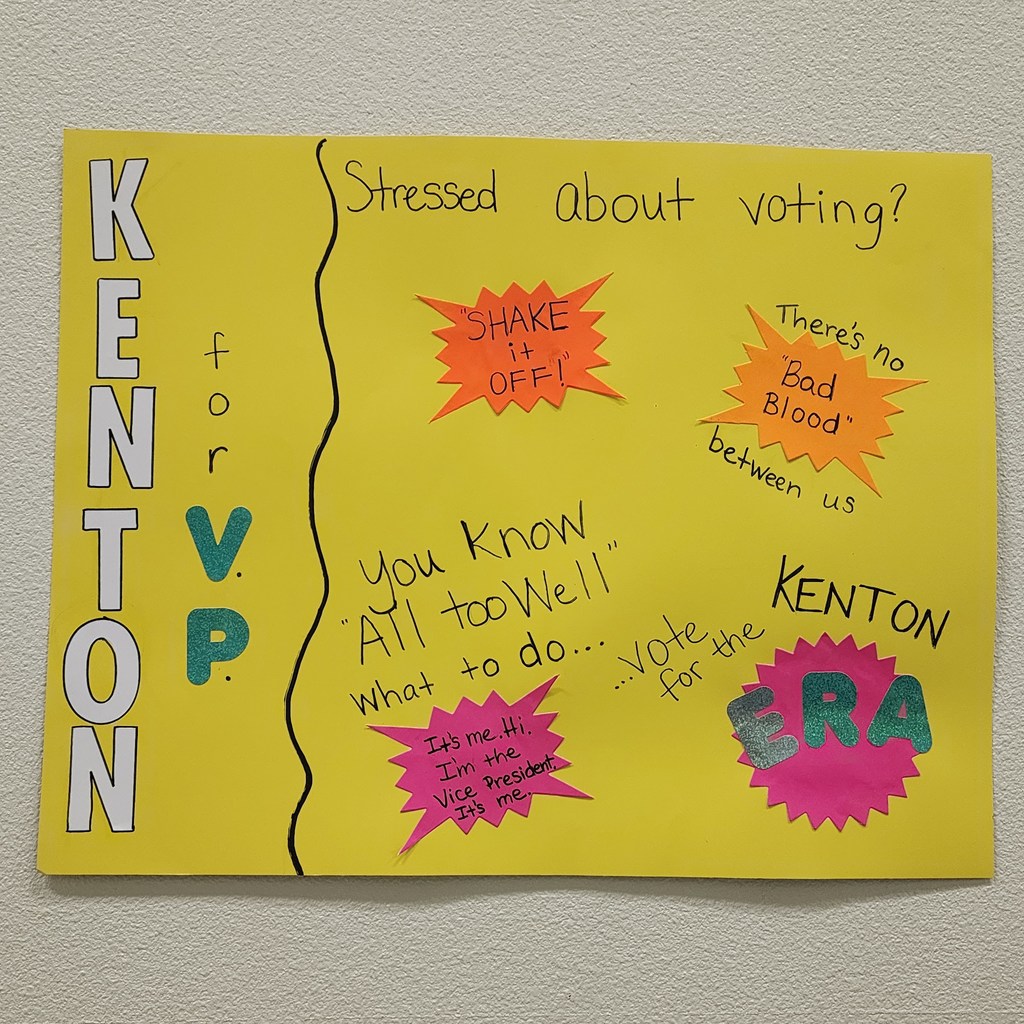 KENTON
for
V.P.
Stressed about voting?
"SHAKE
it
OFF"!
There's no
"Bad
Blood"
between us
You Know
"All too Well"
what to do...
It's me. Hi.
I'm the
Vice President.
It's me.
...vote
for the
KENTON
ERA